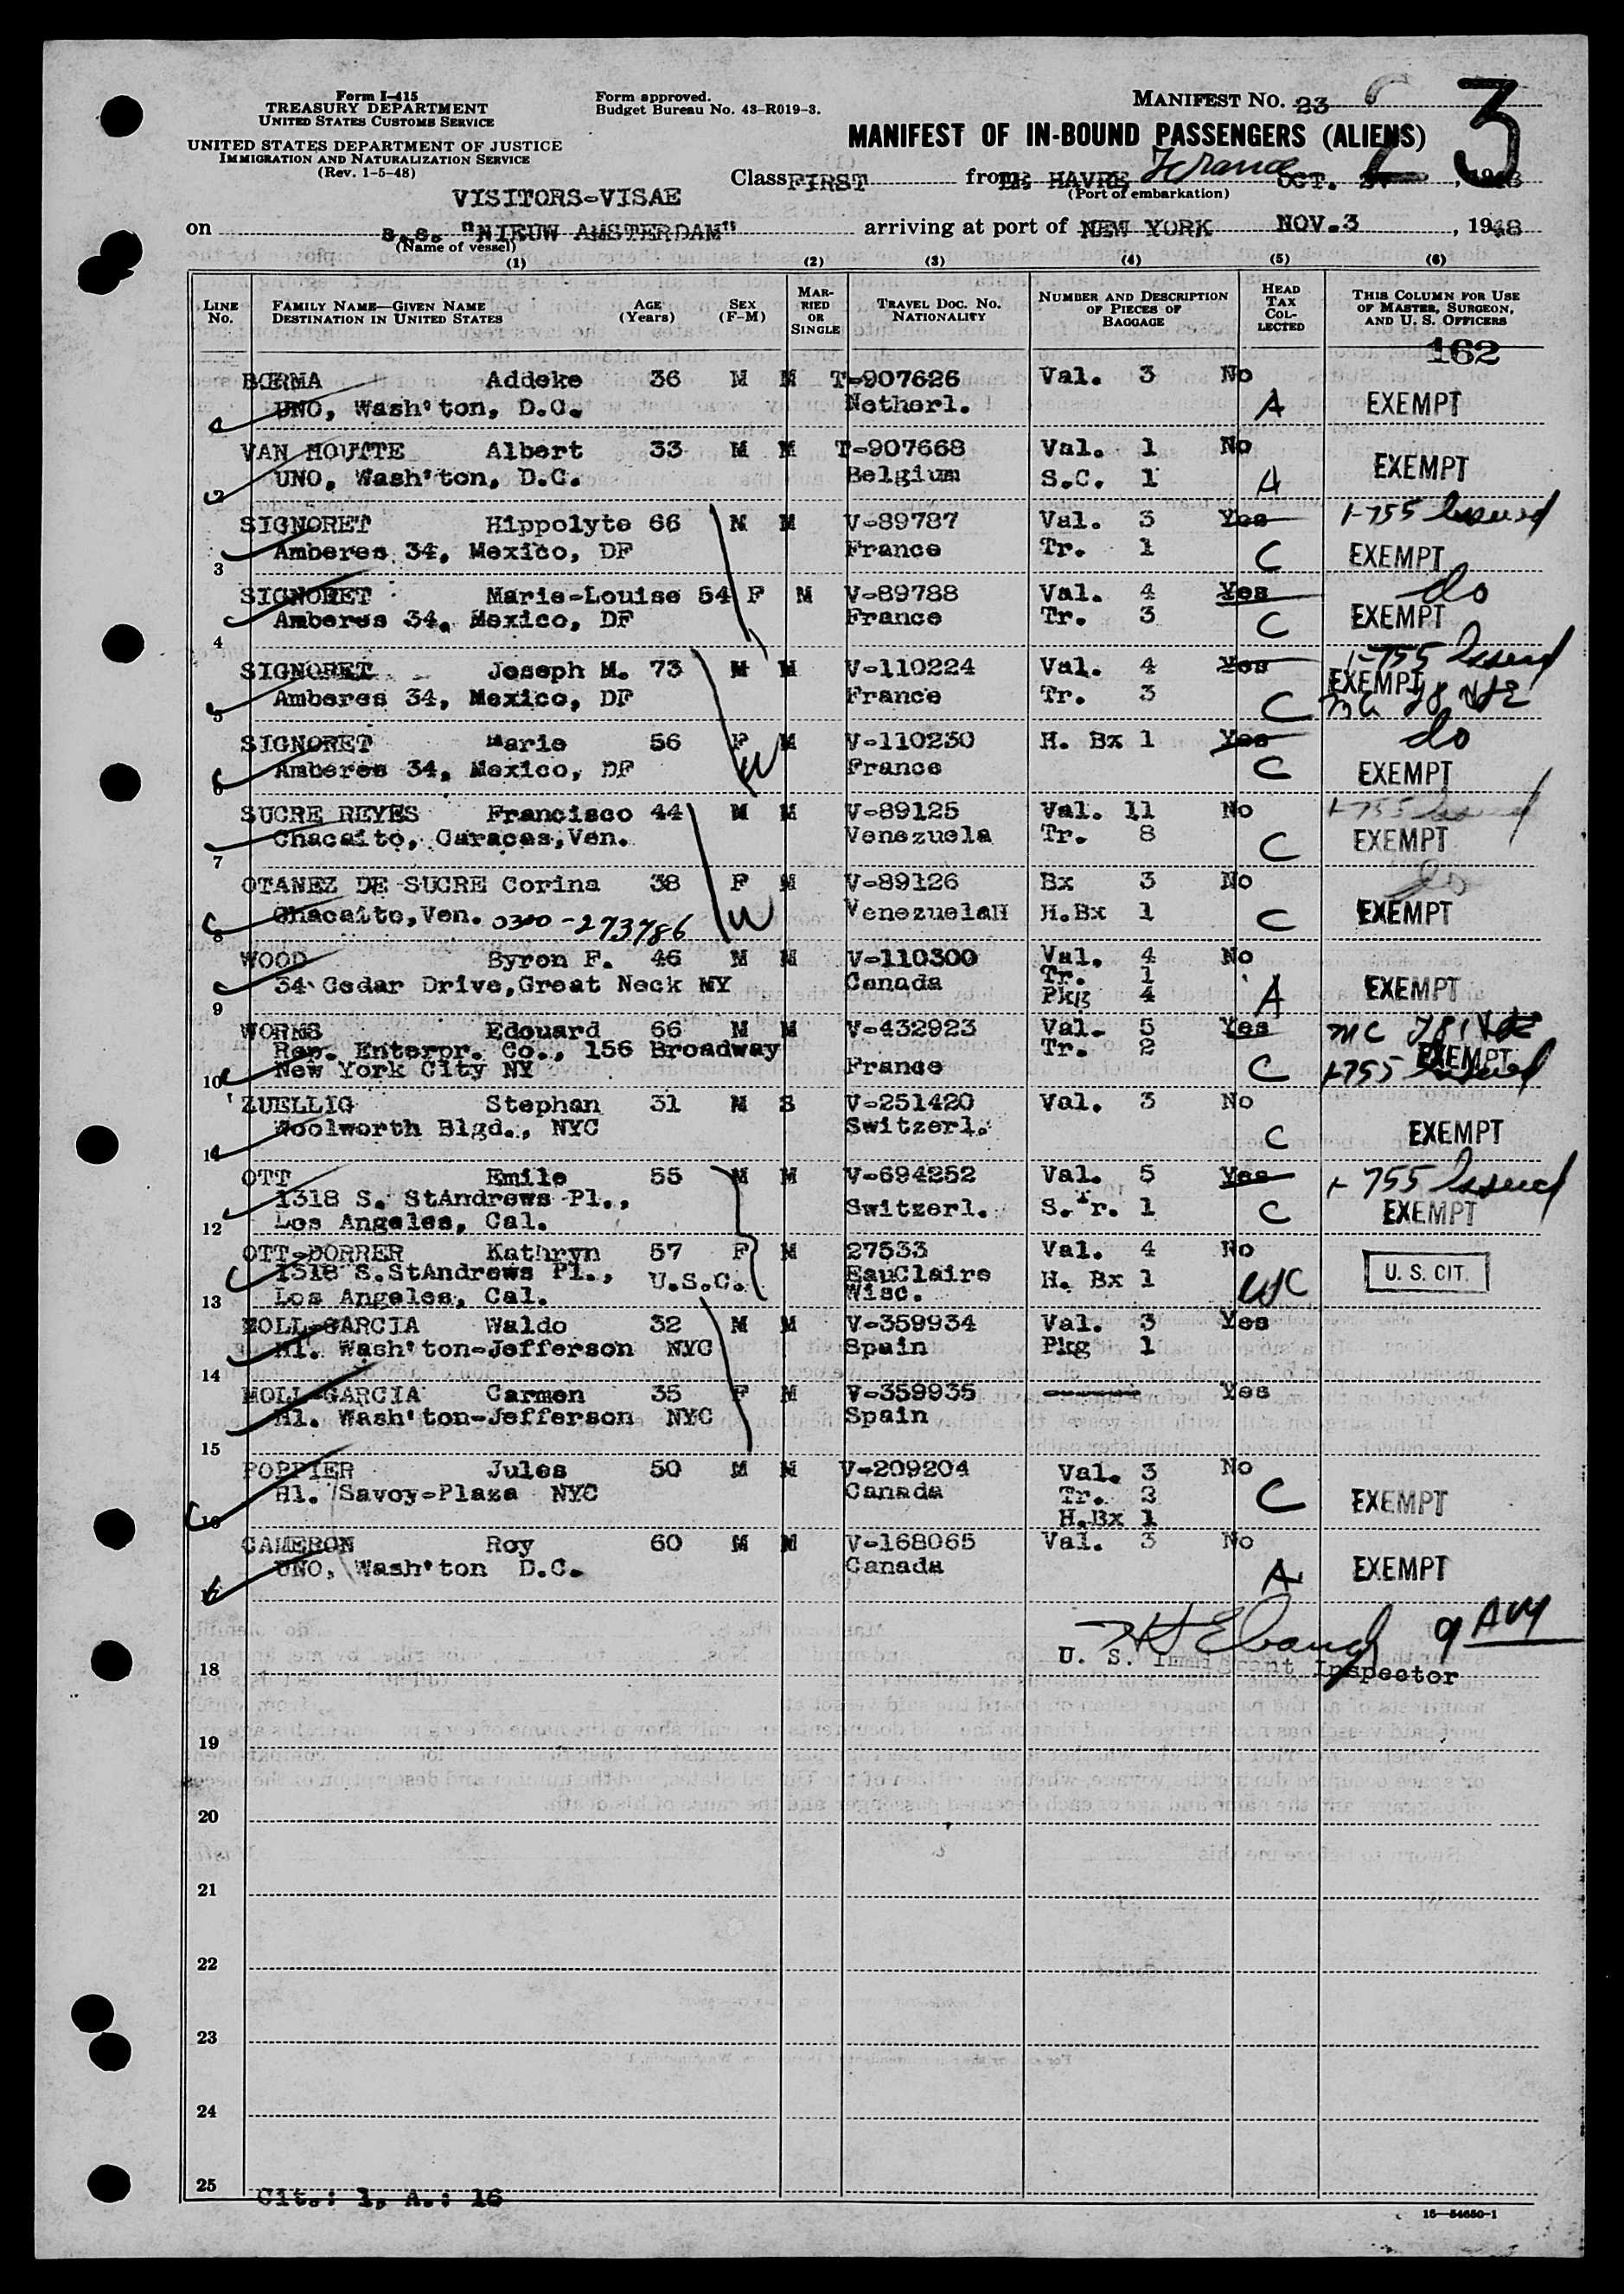 Form I-415
TREASURY DEPARTMENT
UNITED STATES CUSTOMS SERVICE
UNITED STATES DEPARTMENT OF JUSTICE
IMMIGRATION AND NATURALIZATION SERVICE
(Rev. 1-5-48)
Form approved.
Budget Bureau No. 43-R019-3.
MANIFEST NO. 23
3
MANIFEST OF IN-BOUND PASSENGERS (ALIENS)
VISITORS-VISAE
Class FIRST from LE HAVRE France OCT. , 1948
(Port of embarkation)
on s.s. "NIEUW AMSTERDAM" arriving at port of NEW YORK NOV.3 , 1948
(Name of vessel)
(1) (2) (3) (4) (5) (6)
LINE NO. FAMILY NAME—GIVEN NAME DESTINATION IN UNITED STATES AGE (Years) SEX (F-M) MARRIED OR SINGLE TRAVEL DOC. NO. NATIONALITY NUMBER AND DESCRIPTION OF PIECES OF BAGGAGE HEAD TAX COLLECTED THIS COLUMN FOR USE OF MASTER, SURGEON, AND U. S. OFFICERS
162
BOERMA Addeke 36 M M T-907626 Val. 3 No
UNO, Wash'ton, D.C. Netherl. A EXEMPT
VAN HOUTTE Albert 33 M M T-907668 Val. 1 No
2 UNO, Wash'ton, D.C. Belgium S.C. 1 A EXEMPT
SIGNORET Hippolyte 66 M M V-89787 Val. 3 Yes I-755 Issued
3 Amberes 34, Mexico, DF France Tr. 1 C EXEMPT
SIGNORET Marie-Louise 54 F M V-89788 Val. 4 Yes do
4 Amberes 34, Mexico, DF France Tr. 3 C EXEMPT
SIGNORET Joseph M. 73 M M V-110224 Val. 4 Yes I-755 Issued
5 Amberes 34, Mexico, DF France Tr. 3 C EXEMPT
SIGNORET Marie 56 F M V-110230 H. Bx 1 Yes do
6 Amberes 34, Mexico, DF W France C EXEMPT
SUCRE REYES Francisco 44 M M V-89125 Val. 11 No I-755 Issued
7 Chacaito, Caracas,Ven. Venezuela Tr. 8 C EXEMPT
OTANEZ DE SUCRE Corina 38 F M V-89126 Bx 3 No do
8 Chacaito,Ven. 0300-273786 W Venezuelan H.Bx 1 C EXEMPT
WOOD Byron F. 46 M M V-110300 Val. 4 No
34 Cedar Drive,Great Neck NY Canada Tr. 1
9 Pkg 4 A EXEMPT
WORMS Edouard 66 M M V-432923 Val. 5 Yes
Rep. Enterpr. Co., 156 Broadway Tr. 2 EXEMPT
10 New York City NY France C I-755 Issued
ZUELLIG Stephan 31 M S V-251420 Val. 3 No
11 Woolworth Blgd., NYC Switzerl. C EXEMPT
OTT Emile 55 M M V-694252 Val. 5 Yes I-755 Issued
1318 S. StAndrews Pl., Switzerl. S.Tr. 1 C EXEMPT
12 Los Angeles, Cal.
OTT-DORRER Kathryn 57 F M 27533 Val. 4 No
1318 S.StAndrews Pl., U.S.C. EauClaire H. Bx 1 U. S. CIT.
13 Los Angeles, Cal. Wisc. USC
MOLL-GARCIA Waldo 32 M M V-359934 Val. 3 Yes
14 Hl. Wash'ton-Jefferson NYC Spain Pkg 1
MOLL-GARCIA Carmen 35 F M V-359935 Yes
15 Hl. Wash'ton-Jefferson NYC Spain
POPPIER Jules 50 M M V-209204 Val. 3 No
Hl. Savoy-Plaza NYC Canada Tr. 2 C EXEMPT
16 H.Bx 1
CAMERON Roy 60 M M V-168065 Val. 3 No
UNO, Wash'ton D.C. Canada A EXEMPT
9 AM
18 U. S. Immigrant Inspector
19
20
21
22
23
24
25
Cit.: 1, A.: 16
16—54650-1